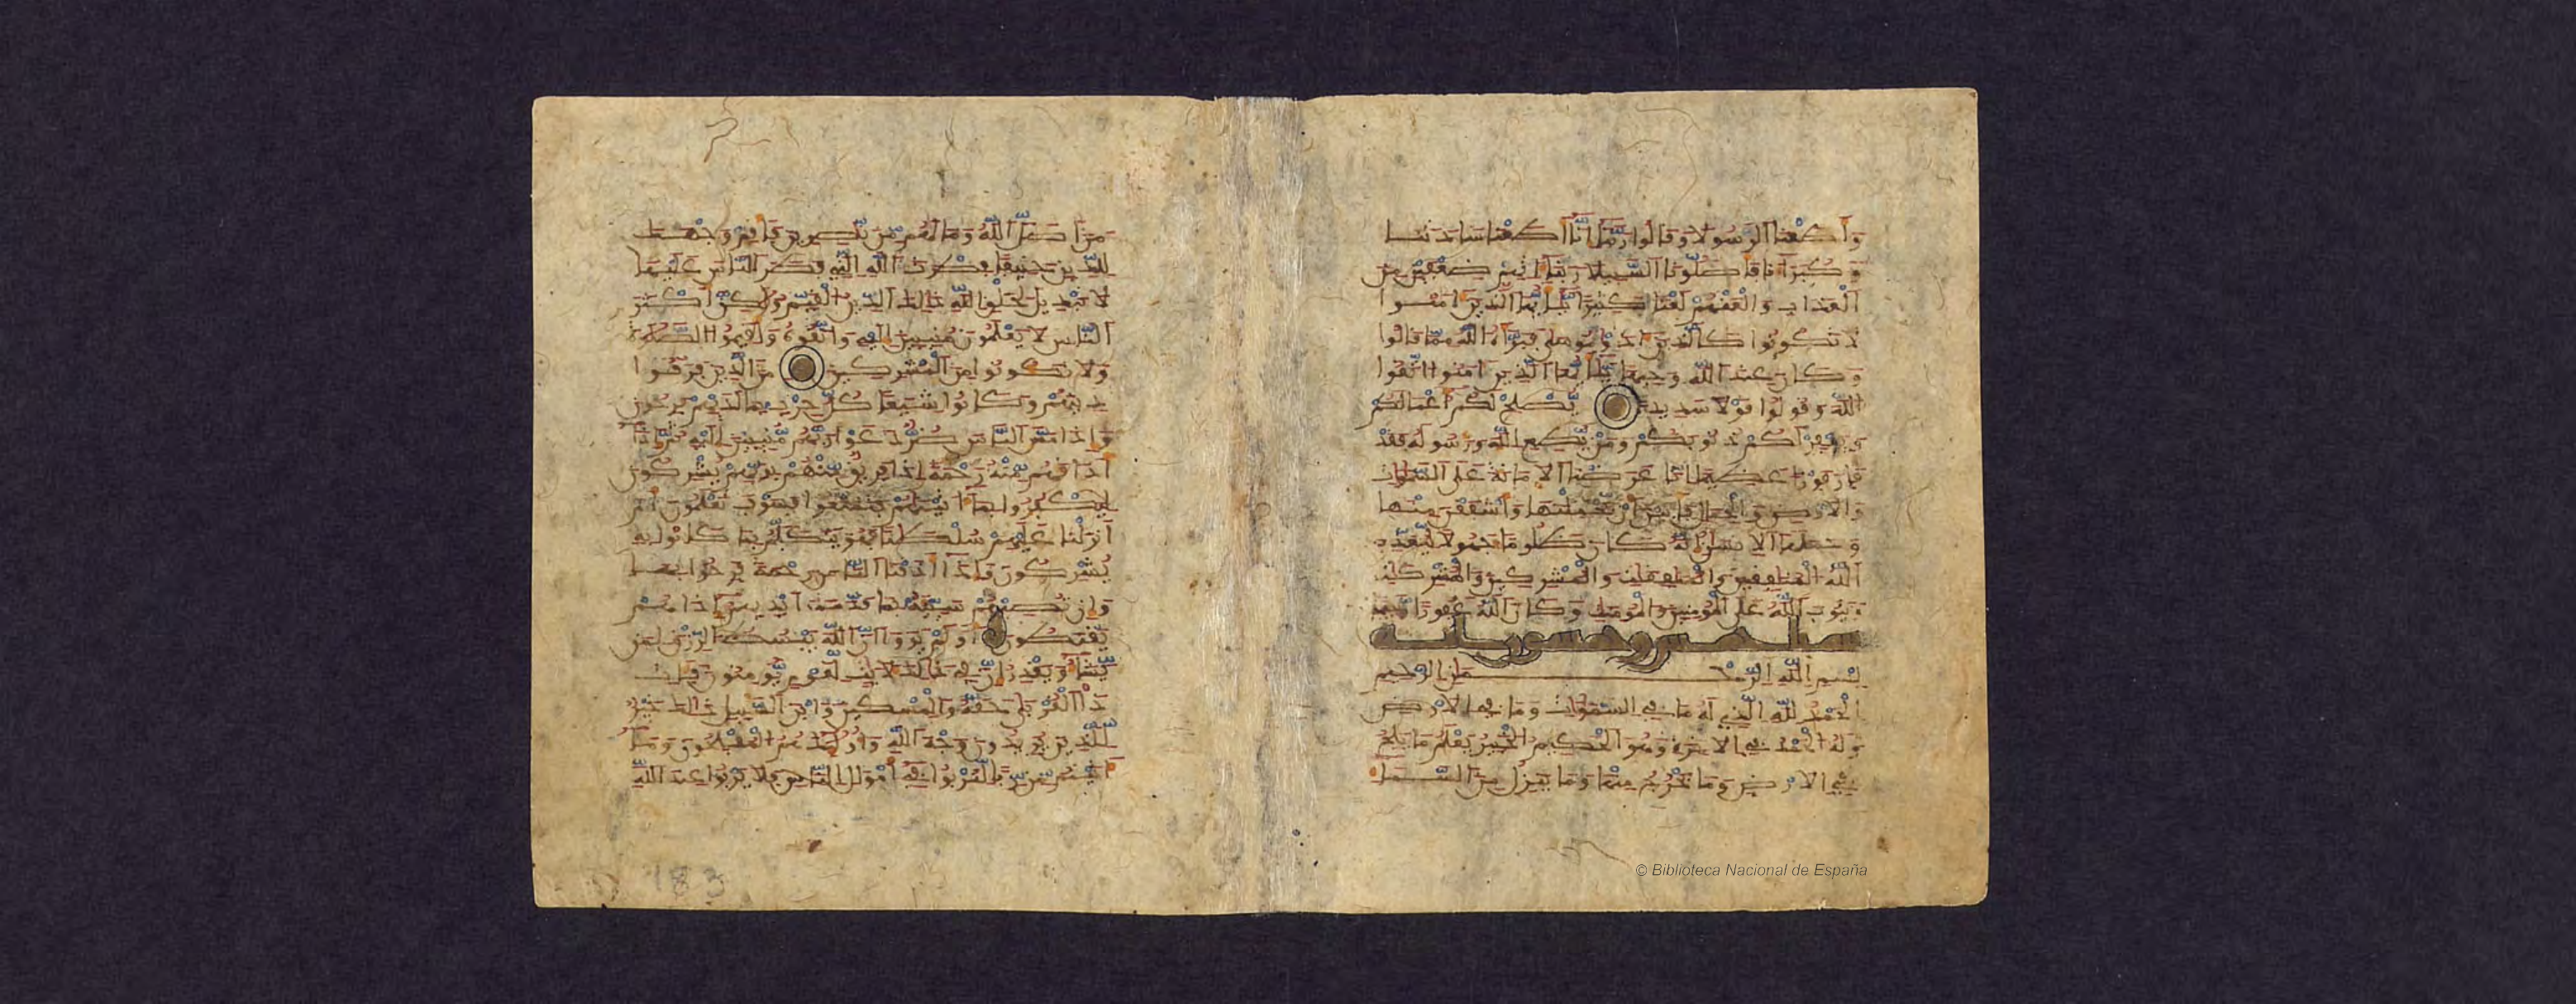 وأطعنا الرسولا وقالوا ربنا إنا أطعنا سادتنا
وكبرآءنا فأضلونا السبيلا ربنآ ءاتهم ضعفين من
العذاب والعنهم لعنا كثيرا يأيها الذين ءامنوا
لا تكونوا كالذين ءاذوا موسى فبرأه الله مما قالوا
وكان عند الله وجيها يأيها الذين ءامنوا اتقوا
الله وقولوا قولا سديدا يصلح لكم أعمالكم
ويغفر لكم ذنوبكم ومن يطع الله ورسوله فقد
فاز فوزا عظيما إنا عرضنا الامانة على السموات
والارض والجبال فأبين أن يحملنها وأشفقن منها
وحملها الانسن إنه كان ظلوما جهولا ليعذب
الله المنفقين والمنفقت والمشركين والمشركت
ويتوب الله على المومنين والمومنت وكان الله غفورا رحيما
سبا خمس وخمسون اية
بسم الله الرحمن الرحيم
الحمد لله الذي له ما في السموات وما في الارض
وله الحمد في الاخرة وهو الحكيم الخبير يعلم ما يلج
في الارض وما يخرج منها وما ينزل من السما
من أضل الله وما لهم من نصرين فأقم وجهك
للدين حنيفا فطرت الله التي فطر الناس عليها
لا تبديل لخلق الله ذلك الدين القيم ولكن أكثر
الناس لا يعلمون منيبين إليه واتقوه وأقيموا الصلوة
ولا تكونوا من المشركين من الذين فرقوا
دينهم وكانوا شيعا كل حزب بما لديهم فرحون
وإذا مس الناس ضر دعوا ربهم منيبين إليه ثم إذا
أذاقهم منه رحمة إذا فريق منهم بربهم يشركون
ليكفروا بما ءاتينهم فتمتعوا فسوف تعلمون أم
أنزلنا عليهم سلطنا فهو يتكلم بما كانوا به
يشركون وإذا أذقنا الناس رحمة فرحوا بها
وإن تصبهم سيئة بما قدمت أيديهم إذا هم
يقنطون أولم يروا أن الله يبسط الرزق لمن
يشاء ويقدر إن في ذلك لايت لقوم يومنون فئات
ذا القربى حقه والمسكين وابن السبيل ذلك خير
للذين يريدون وجه الله وأولئك هم المفلحون وما
ءاتيتم من ربا لتربوا في أمول الناس فلا يربوا عند الله
183
© Biblioteca Nacional de España